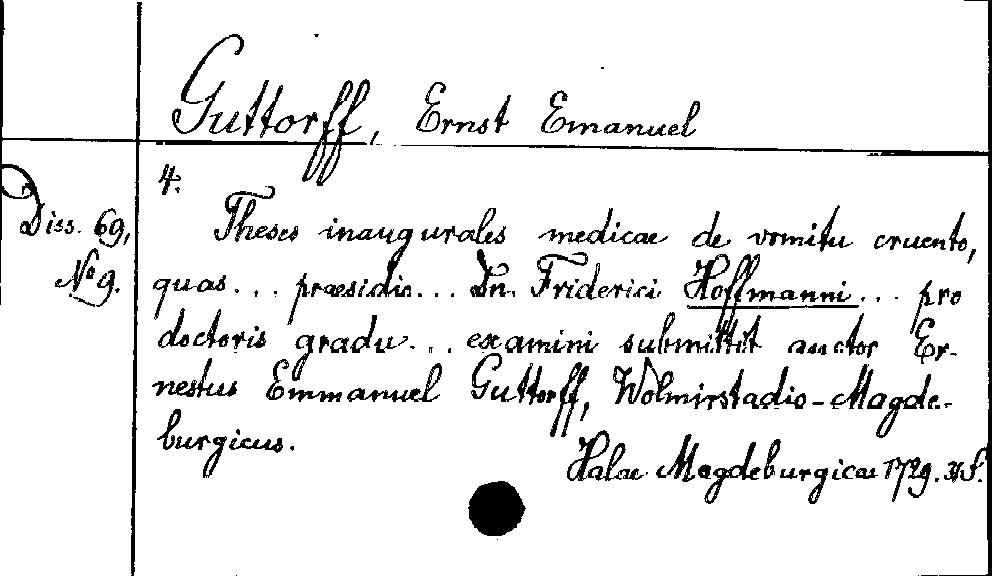 Guttorff, Ernst Emanuel
4.
Diss. 69,
No 9.
Theses inaugurales medicae de vomitu cruento,
quas... praesidio... Dn. Friderici Hoffmanni... pro
doctoris gradu... examini submittit auctor Er-
nestus Emmanuel Guttorff, Wolmirstadio-Magde-
burgicus.
Halae Magdeburgicae 1729. S.